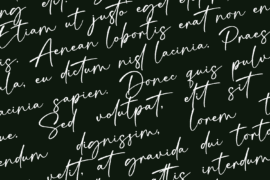 eget
Etiam et justo eget elit
Aenean lobortis erat non en
eu dictum nisl lacinia. Praes
lacinia sapien. Donec quis pulv
Sed volutpat, elit sit
dignissim, lorem
velit, at gravida dui tort
interdum